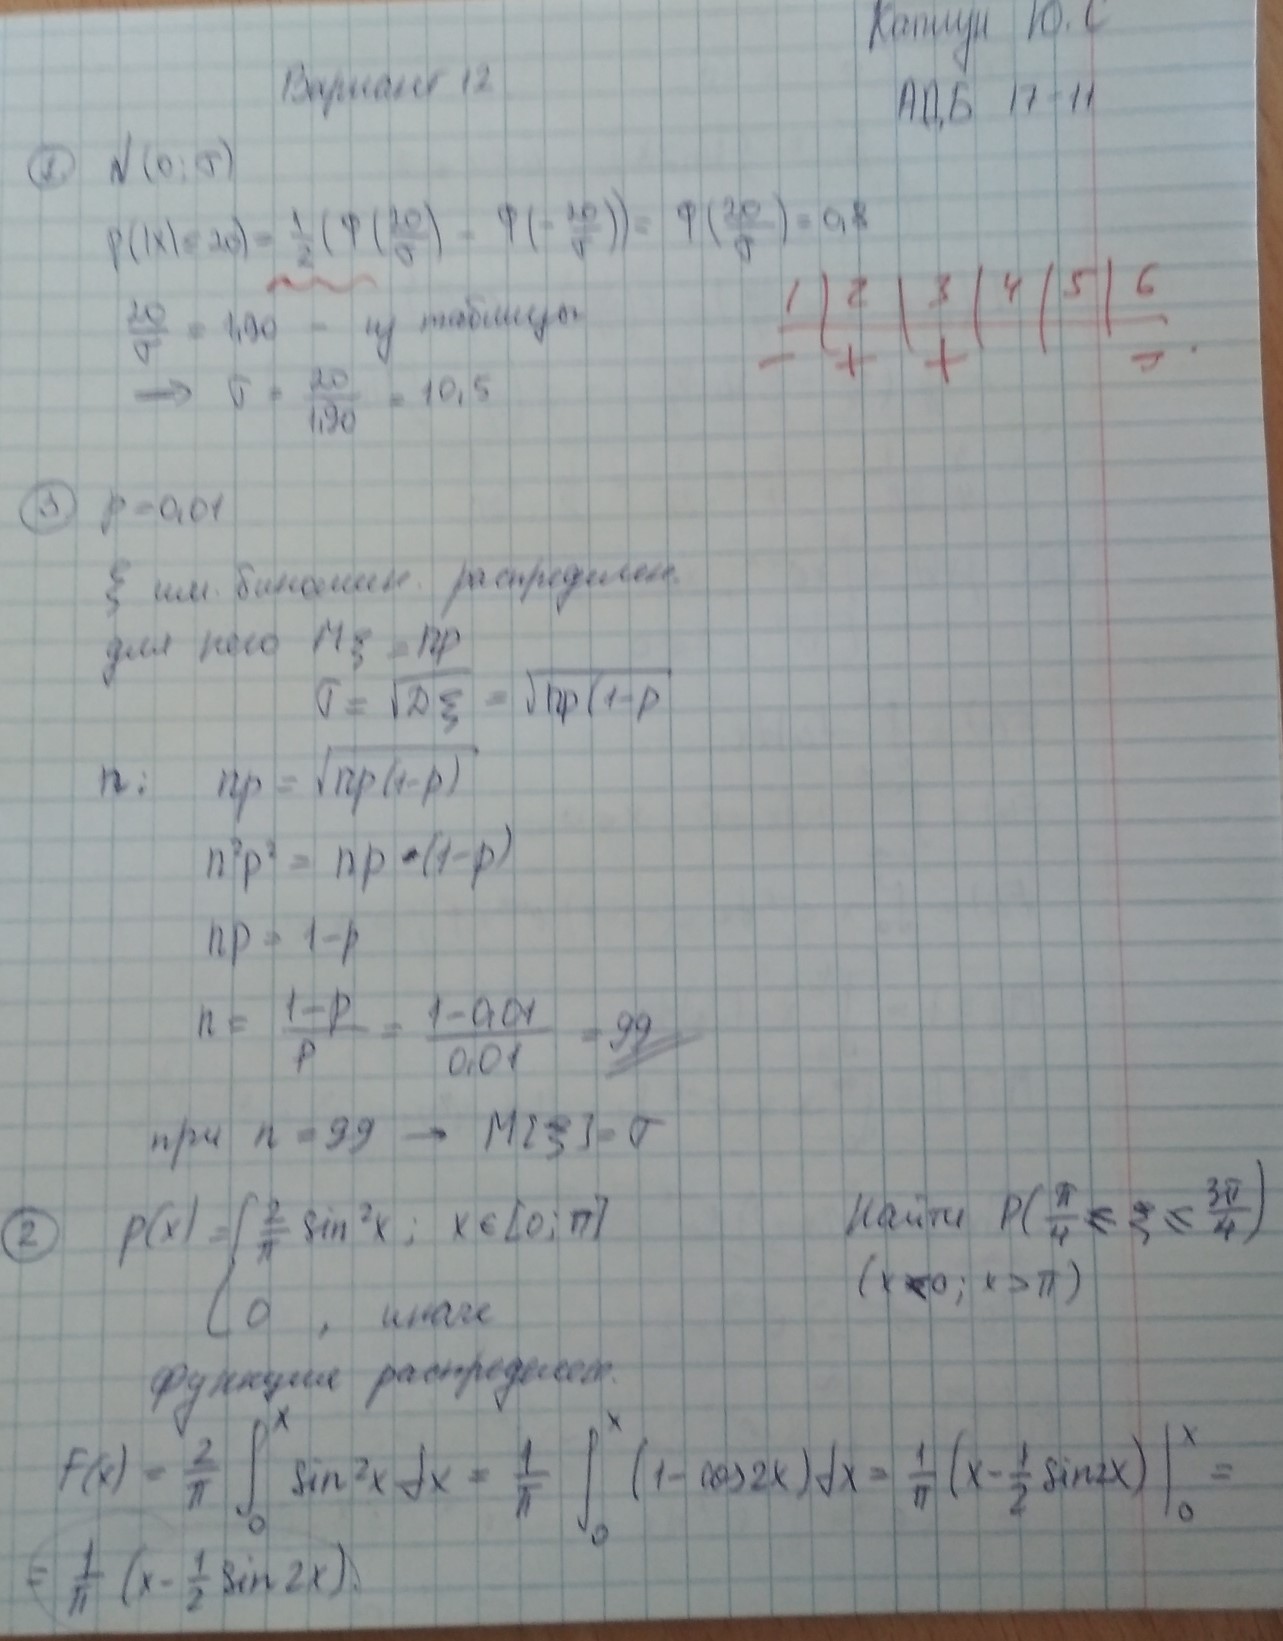 Ю.С
Вариант 12
АДБ 17-11
① N(0; σ)
P(|X|≤20) = 1/2 (Φ(20/σ) - Φ(-20/σ)) = Φ(20/σ) = 0,8
1 | 2 | 3 | 4 | 5 | 6
- + + -
20/σ = 1,90 - из таблицы
→ σ = 20/1,90 = 10,5
③ p = 0,01
ξ им. биномин. распределен.
для него Mξ = np
σ = √Dξ = √np(1-p
n: np = √np(1-p)
n²p² = np·(1-p)
np = 1-p
n = 1-p/p = 1-0,01/0,01 = 99
при n = 99 → M[ξ] = σ
② p(x) = { 2/π sin²x; x ∈ [0; π] Найти P(π/4 ≤ ξ ≤ 3π/4)
0, иначе (x<0; x>π)
Функция распределен.
F(x) = 2/π ∫₀ˣ sin²x dx = 1/π ∫₀ˣ (1-cos2x)dx = 1/π (x - 1/2 sin2x) |₀ˣ =
= 1/π (x - 1/2 sin2x).